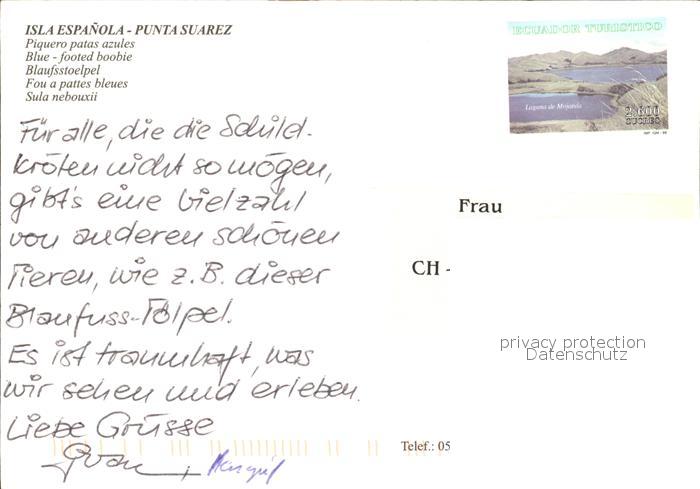 ISLA ESPAÑOLA - PUNTA SUAREZ
Piquero patas azules
Blue - footed boobie
Blaufsstoelpel
Fou a pattes bleues
Sula nebouxii
ECUADOR TURISTICO
Laguna de Mojanda
2.600
SUCRES
Für alle, die die Schild-
kröten nicht so mögen,
gibt's eine Vielzahl
von anderen schönen
Tieren, wie z.B. dieser
Blaufuss-Tölpel.
Es ist traumhaft, was
wir sehen und erleben.
Liebe Grüsse
Frau
CH -
privacy protection
Datenschutz
Telef.: 05